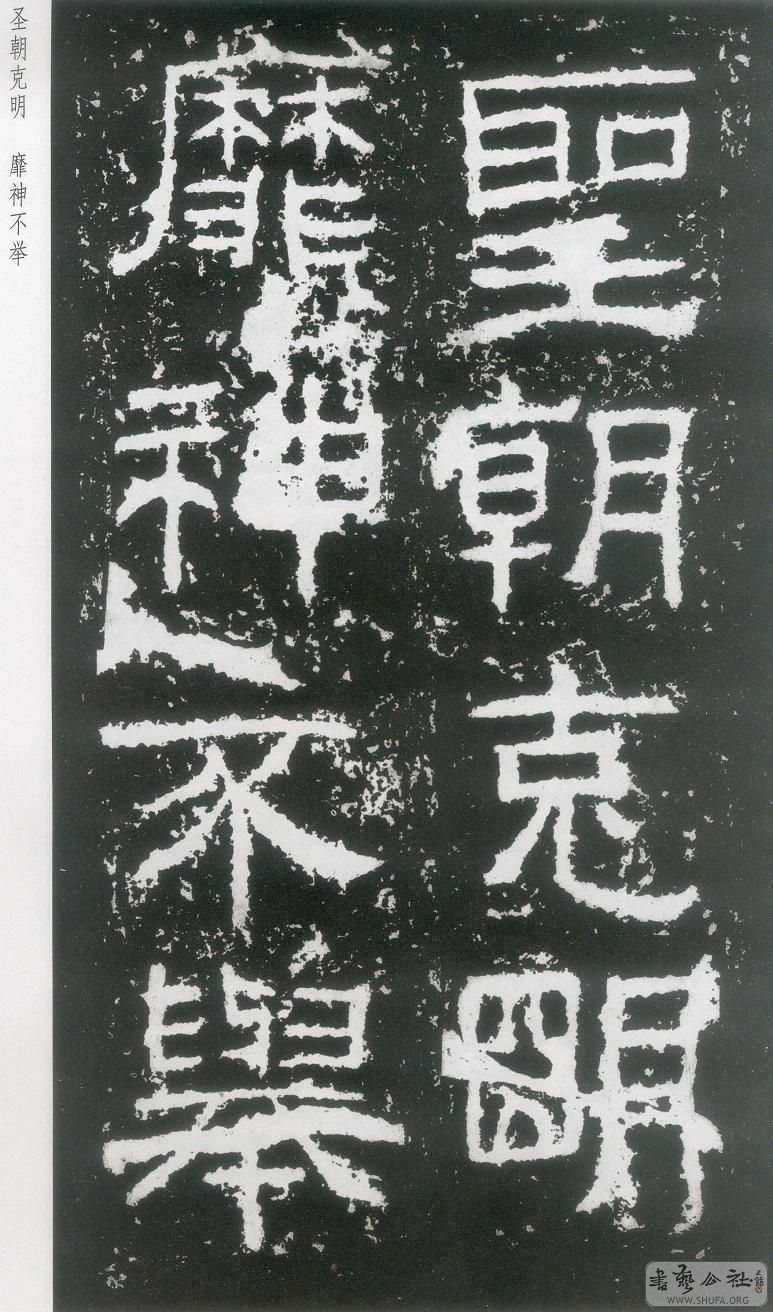 聖朝克明
靡神不舉
圣朝克明　靡神不举
書藝公社
WWW.SHUFA.ORG